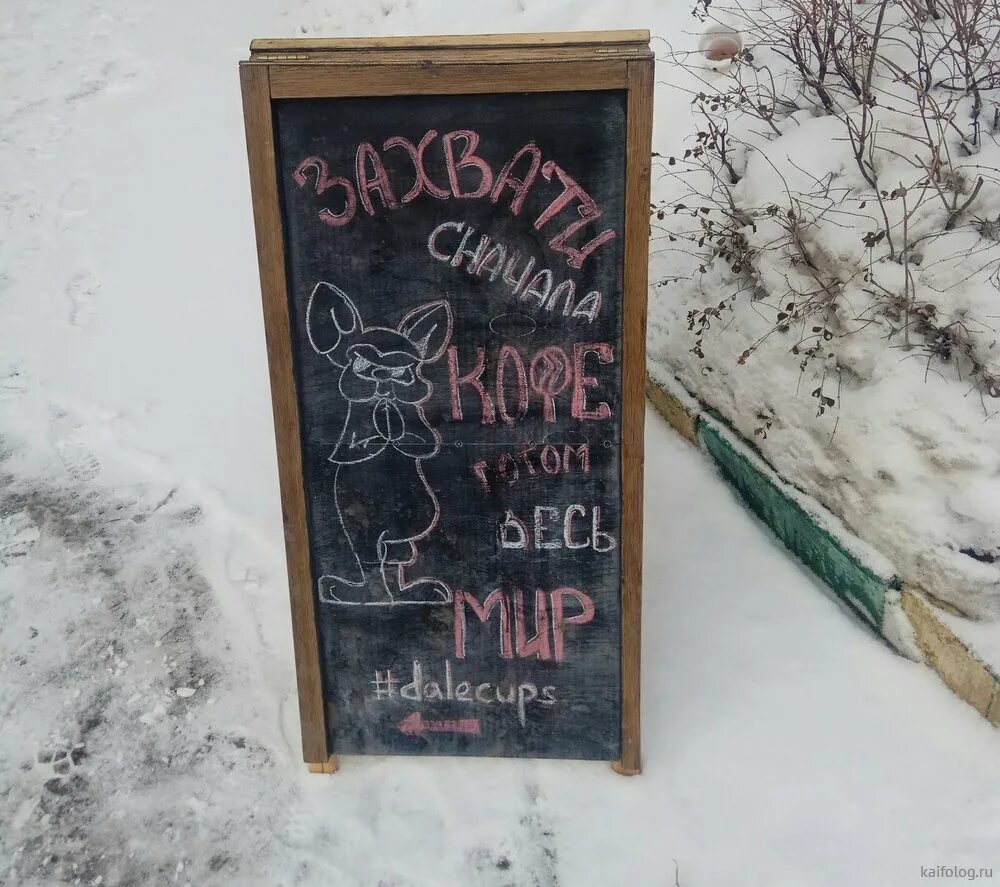 ЗАХВАТИ
СНАЧАЛА
КОФЕ
ПОТОМ
ВЕСЬ
МИР
#dalecups
kaifolog.ru